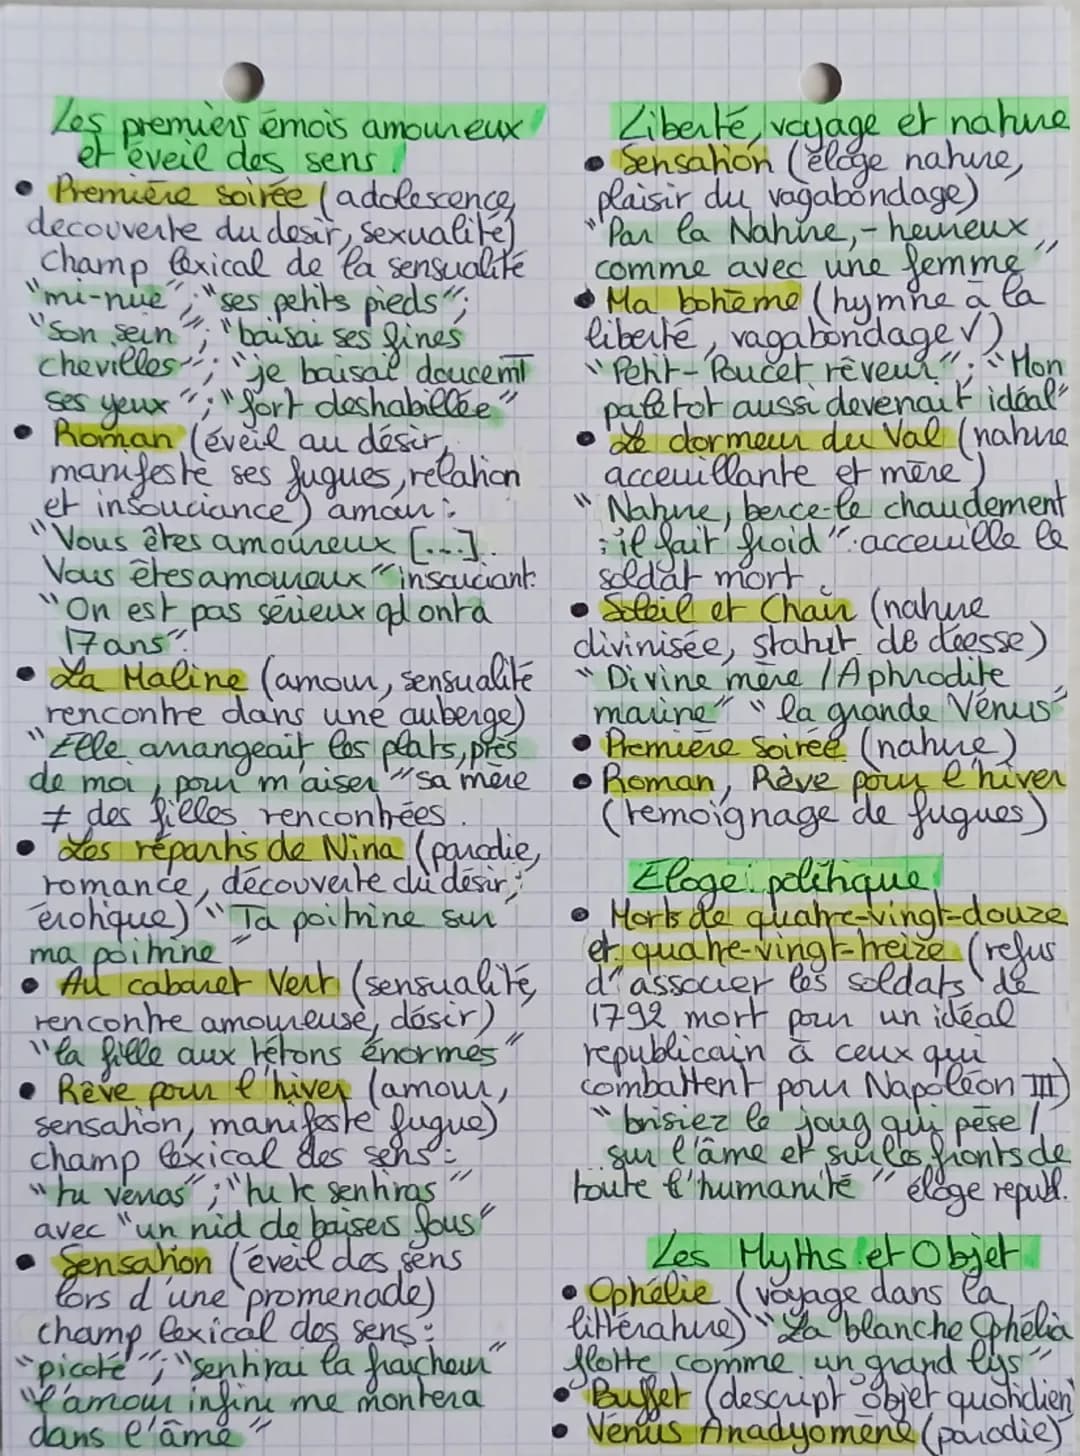 Les premiers émois amoureux
et éveil des sens
• Première soirée (adolescence,
decouverte du desir, sexualité)
champ lexical de la sensualité
"mi-nue"; "ses petits pieds";
"son sein"; "baisai ses fines
chevilles"; "je baisai doucemt
ses yeux"; "fort deshabillée"
• Roman (éveil au désir,
manifeste ses fugues, relation
et insouciance) amour:
"Vous êtes amoureux [...].
Vous êtes amoureux" insouciant:
"On est pas sérieux qd on t a
17 ans".
• La Maline (amour, sensualité
rencontre dans une auberge)
"Elle arrangeait les plats, près
de moi, pour m'aiser" sa mère
≠ des filles rencontrées.
• Les répartis de Nina (parodie,
romance, découverte du désir,
érotique) "Ta poitrine sur
ma poitrine"
• Au cabaret Vert (sensualité,
rencontre amoureuse, désir)
"la fille aux tétons énormes"
• Rêve pour l'hiver (amour,
sensation, manifeste fugue)
champ lexical des sens:
"tu verras"; "tu te sentiras"
avec "un nid de baisers fous"
• Sensation (éveil des sens
lors d'une promenade)
champ lexical des sens:
"picoté"; "sentirai la fraicheur"
"l'amour infini me montera
dans l'âme"
Liberté, voyage et nature
• Sensation (éloge nature,
plaisir du vagabondage)
"Par la Nature, - heureux
comme avec une femme"
• Ma bohème (hymne à la
liberté, vagabondage √)
"Petit-Poucet rêveur"; "Mon
paletot aussi devenait idéal"
• Le dormeur du Val (nature
acceuillante et mère)
"Nature, berce-le chaudement
: il fait froid". acceuille le
soldat mort.
• Soleil et Chair (nature
divinisée, statut de déesse)
"Divine mère / Aphrodite
marine" "la grande Vénus"
• Première Soirée (nature)
• Roman, Rêve pour l'hiver
(temoignage de fugues)
Eloge politique
• Morts de quatre-vingt-douze
et quatre-vingt-treize (refus
d'associer les soldats de
1792 mort pour un idéal
republicain à ceux qui
combattent pour Napoléon III)
"brisiez le joug qui pèse /
sur l'âme et sur les fronts de
toute l'humanité" éloge republ.
Les Myths et Objet
• Ophélie (voyage dans la
littérature) "La blanche Ophélia
flotte comme un grand lys"
• Buffet (descript° objet quotidien)
• Vénus Anadyomène (parodie)